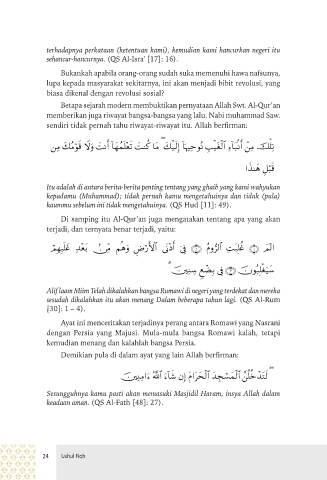 terhadapnya perkataan (ketentuan kami), kemudian kami hancurkan negeri itu
sehancur-hancurnya. (QS Al-Isra' [17]: 16).
Bukankah apabila orang-orang sudah suka memenuhi hawa nafsunya,
lupa kepada masyarakat sekitarnya, ini akan menjadi bibit revolusi, yang
biasa dikenal dengan revolusi sosial?
Betapa sejarah modern membuktikan pernyataan Allah Swt. Al-Qur'an
memberikan juga riwayat bangsa-bangsa yang lalu. Nabi muhammad Saw.
sendiri tidak pernah tahu riwayat-riwayat itu. Allah berfirman:
تِلْكَ مِنْ أَنۢبَآءِ ٱلْغَيْبِ نُوحِيهَآ إِلَيْكَ ۖ مَا كُنتَ تَعْلَمُهَآ أَنتَ وَلَا قَوْمُكَ مِن
قَبْلِ هَٰذَا
Itu adalah di antara berita-berita penting tentang yang ghaib yang kami wahyukan
kepadamu (Muhammad); tidak pernah kamu mengetahuinya dan tidak (pula)
kaummu sebelum ini tidak mengetahuinya. (QS Hud [11]: 49).
Di samping itu Al-Qur'an juga mengatakan tentang apa yang akan
terjadi, dan ternyata benar terjadi, yaitu:
الٓمٓ ۝ غُلِبَتِ ٱلرُّومُ ۝ فِىٓ أَدْنَى ٱلْأَرْضِ وَهُم مِّنۢ بَعْدِ غَلَبِهِمْ
سَيَغْلِبُونَ ۝ فِى بِضْعِ سِنِينَ ۗ
Alif laam Miim Telah dikalahkan bangsa Rumawi di negeri yang terdekat dan mereka
sesudah dikalahkan itu akan menang Dalam beberapa tahun lagi. (QS Al-Rum
[30]: 1 – 4).
Ayat ini menceritakan terjadinya perang antara Romawi yang Nasrani
dengan Persia yang Majusi. Mula-mula bangsa Romawi kalah, tetapi
kemudian menang dan kalahlah bangsa Persia.
Demikian pula di dalam ayat yang lain Allah berfirman:
لَتَدْخُلُنَّ ٱلْمَسْجِدَ ٱلْحَرَامَ إِن شَآءَ ٱللَّهُ ءَامِنِينَ
Sesungguhnya kamu pasti akan memasuki Masjidil Haram, insya Allah dalam
keadaan aman. (QS Al-Fath [48]: 27).
24 Ushul Fiqh